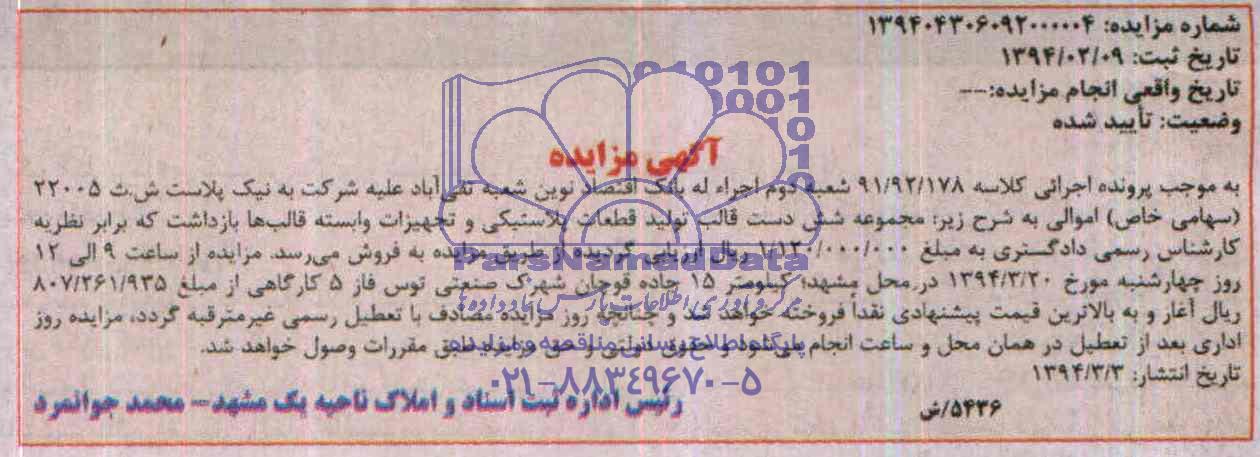 شماره مزایده: ۱۳۹۴۰۴۳۰۶۰۹۲۰۰۰۰۰۴
تاریخ ثبت: ۱۳۹۴/۰۲/۰۹
تاریخ واقعی انجام مزایده:--
وضعیت: تأیید شده
آگهی مزایده
به موجب پرونده اجرائی کلاسه ۹۱/۹۲/۱۷۸ شعبه دوم اجراء له بانک اقتصاد نوین شعبه تقی‌آباد علیه شرکت به نیک پلاست ش.ث ۲۲۰۰۵
(سهامی خاص) اموالی به شرح زیر: مجموعه شش دست قالب تولید قطعات پلاستیکی و تجهیزات وابسته قالب‌ها بازداشت که برابر نظریه
کارشناس رسمی دادگستری به مبلغ ۱/۱۲۰/۰۰۰/۰۰۰ ریال ارزیابی گردیده از طریق مزایده به فروش می‌رسد. مزایده از ساعت ۹ الی ۱۲
روز چهارشنبه مورخ ۱۳۹۴/۳/۲۰ در محل مشهد؛ کیلومتر ۱۵ جاده قوچان شهرک صنعتی توس فاز ۵ کارگاهی از مبلغ ۸۰۷/۲۶۱/۹۳۵
ریال آغاز و به بالاترین قیمت پیشنهادی نقداً فروخته خواهد شد و چنانچه روز مزایده مصادف با تعطیل رسمی غیرمترقبه گردد، مزایده روز
اداری بعد از تعطیل در همان محل و ساعت انجام می‌شود و حقوق دولتی و حق مزایده طبق مقررات وصول خواهد شد.
تاریخ انتشار: ۱۳۹۴/۳/۳
رئیس اداره ثبت اسناد و املاک ناحیه یک مشهد – محمد جوانمرد
۵۴۳۶/ش
ParsNamadData
پایگاه اطلاع رسانی مناقصه و مزایده
۰۲۱-۸۸۳۴۹۶۷۰-۵